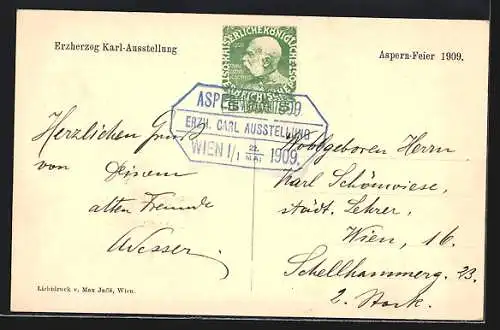 Erzherzog Karl-Ausstellung
Aspern-Feier 1909.
KAISERLICHE KÖNIGLICHE
5
ASPERN 1909
ERZH. CARL AUSSTELLUNG
WIEN 1/1 22. MAI 1909.
Herzlichen Gruß
von Deinem
alten Freunde
Wohlgeboren Herrn
Karl Schönwiese,
städt. Lehrer,
Wien, 16.
Schellhammerg. 23.
2. Stock.
Lichtdruck v. Max Jaffé, Wien.